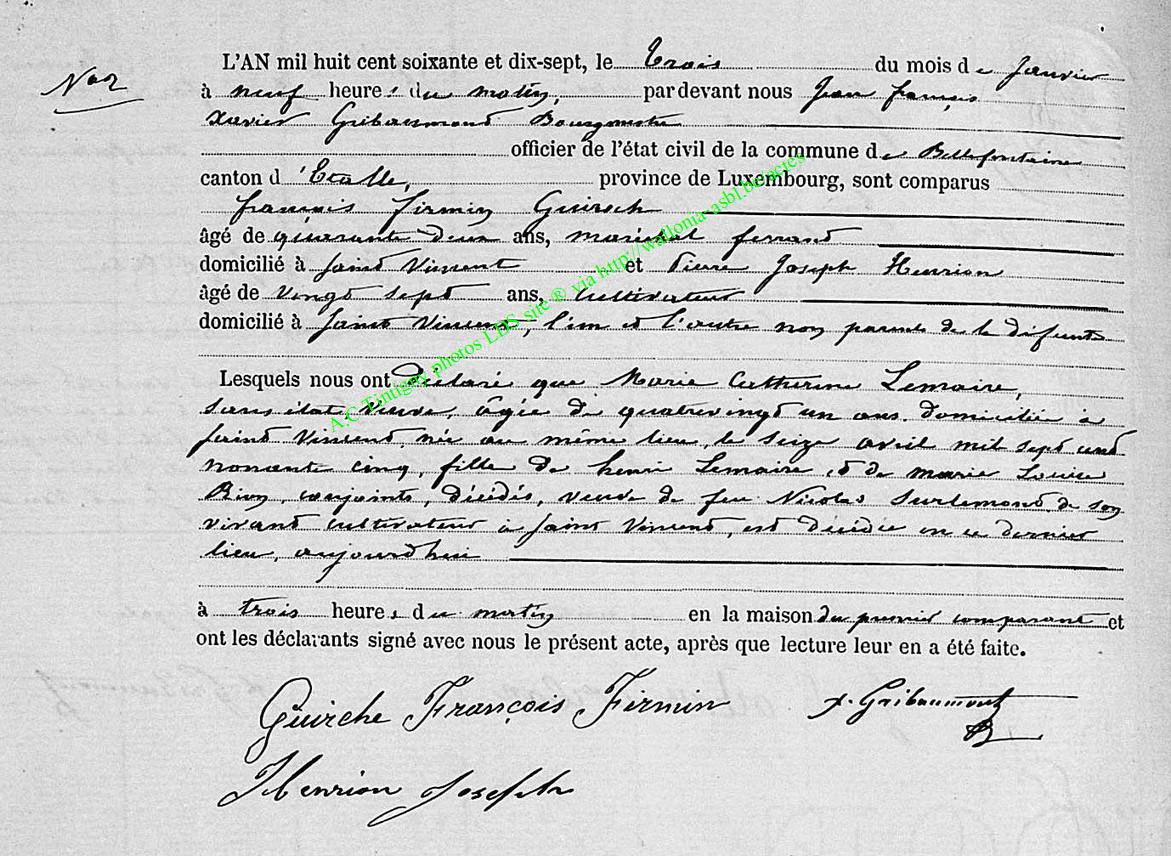 No 2
L'AN mil huit cent soixante et dix-sept, le Trois du mois de Janvier
à neuf heures du matin, par devant nous Jean françois
Xavier Gribaumont Bourgmestre
officier de l'état civil de la commune de Bellefontaine
canton d'Etalle, province de Luxembourg, sont comparus
françois firmin Guirsch
âgé de quarante deux ans, maréchal ferrand
domicilié à Saint Vincent et Pierre Joseph Henrion
âgé de vingt sept ans, Cultivateur
domicilié à Saint Vincent, l'un et l'autre non parents de la défunte
Lesquels nous ont déclaré que Marie Catherine Lemaire,
sans état veuve, âgée de quatrevingt un ans domiciliée à
Saint Vincent, née au même lieu, le seize avril mil sept cent
nonante cinq, fille de henri Lemaire et de marie Louise
conjoints, décédés, veuve de feu Nicolas Surlemont de son
vivant cultivateur à Saint Vincent, est décédée en ce dernier
lieu, aujourd'hui
à trois heures du matin en la maison du premier comparant et
ont les déclarants signé avec nous le présent acte, après que lecture leur en a été faite.
Guirche François Firmin
x. Gribaumont
Henrion Joseph
A.C Tintigny photos LDS site ® via http://wallonia-asbl.be/actes